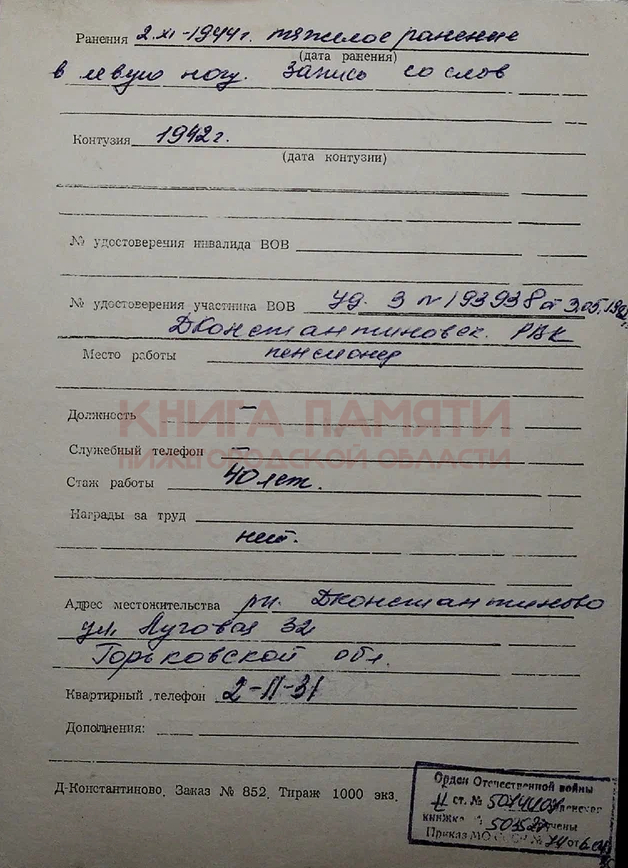 Ранения 2.XI-1944г. тяжелое ранение
(дата ранения)
в левую ногу. Запись со слов
Контузия 1942г.
(дата контузии)
№ удостоверения инвалида ВОВ
№ удостоверения участника ВОВ уд. З № 193938 от 3.05.
Дконстантиновск. РВК
Место работы пенсионер
КНИГА ПАМЯТИ
Должность —
НИЖЕГОРОДСКОЙ ОБЛАСТИ
Служебный телефон —
Стаж работы 40 лет.
Награды за труд
нет.
Адрес местожительства рп. Дконстантиново
ул. Луговая 32
Горьковской обл.
Квартирный телефон 2-11-31
Дополнения:
Д-Константиново. Заказ № 852. Тираж 1000 экз.
Орден Отечественной войны
II ст. №
книжка
Приказ МО СССР №